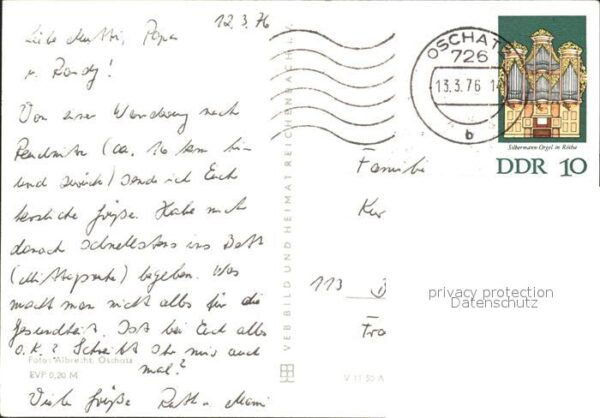 12.3.76
Liebe Mutti, Papa
u. !
Von einer Wanderung nach
(ca. 16 km hin
und zurück) sende ich Euch
herzliche Grüße. Habe mich
danach schnellstens ins Bett
(Mittagsruhe) begeben. Was
macht man nicht alles für die
Gesundheit. Ist bei Euch alles
O.K.? Schreibt Ihr mir auch
mal?
Foto: Albrecht, Oschatz
EVP 0,20 M
Viele Grüße
VEB BILD UND HEIMAT REICHENBACH i. V.
V 11 50 A
OSCHATZ
726
13.3.76
b
Silbermann-Orgel in Rötha
DDR 10
Familie
113
privacy protection
Datenschutz